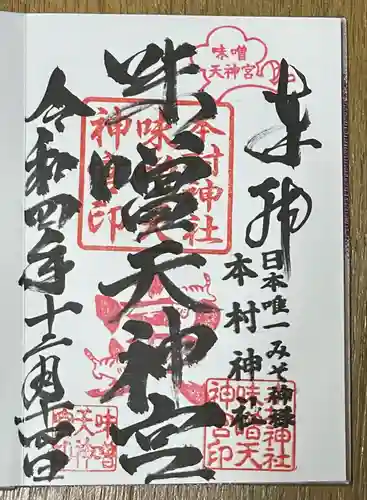 奉拝
日本唯一みそ神様
本村神社
味噌天神宮
令和四年十二月十四日
味噌
天神宮
本村神社
味噌天
神宮印
本村神社
味噌天
神宮印
味噌
天神